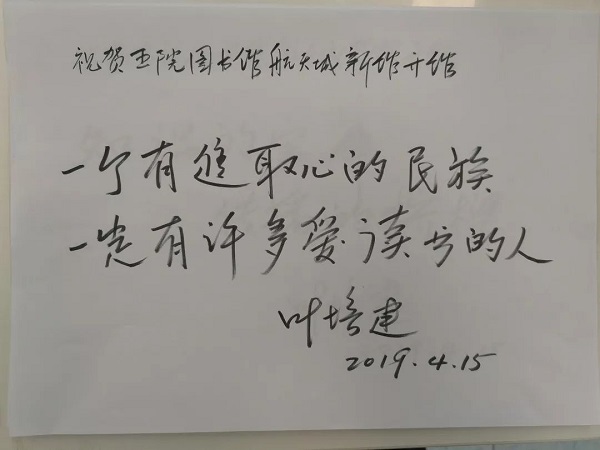 祝贺五院图书馆航天城新馆开馆
一个有進取心的民族
一定有许多爱读书的人
叶培建
2019.4.15